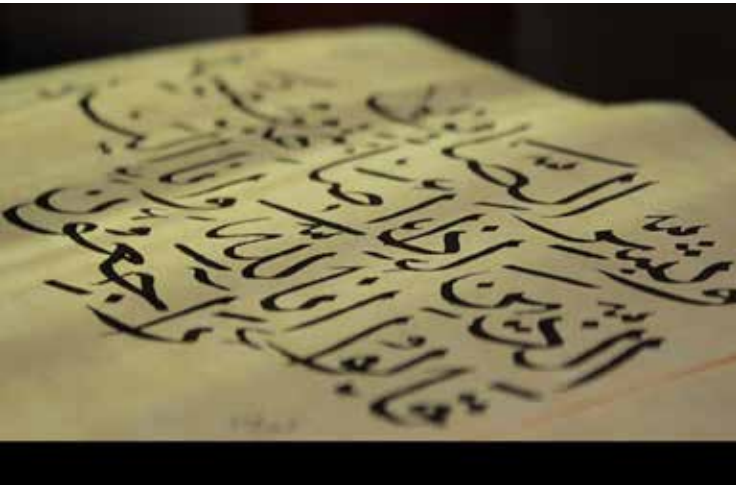 وَبَشِّرِ الصَّابِرِينَ
الَّذِينَ إِذَا أَصَابَتْهُمْ
قَالُوا إِنَّا لِلَّهِ وَإِنَّا إِلَيْهِ
رَاجِعُونَ